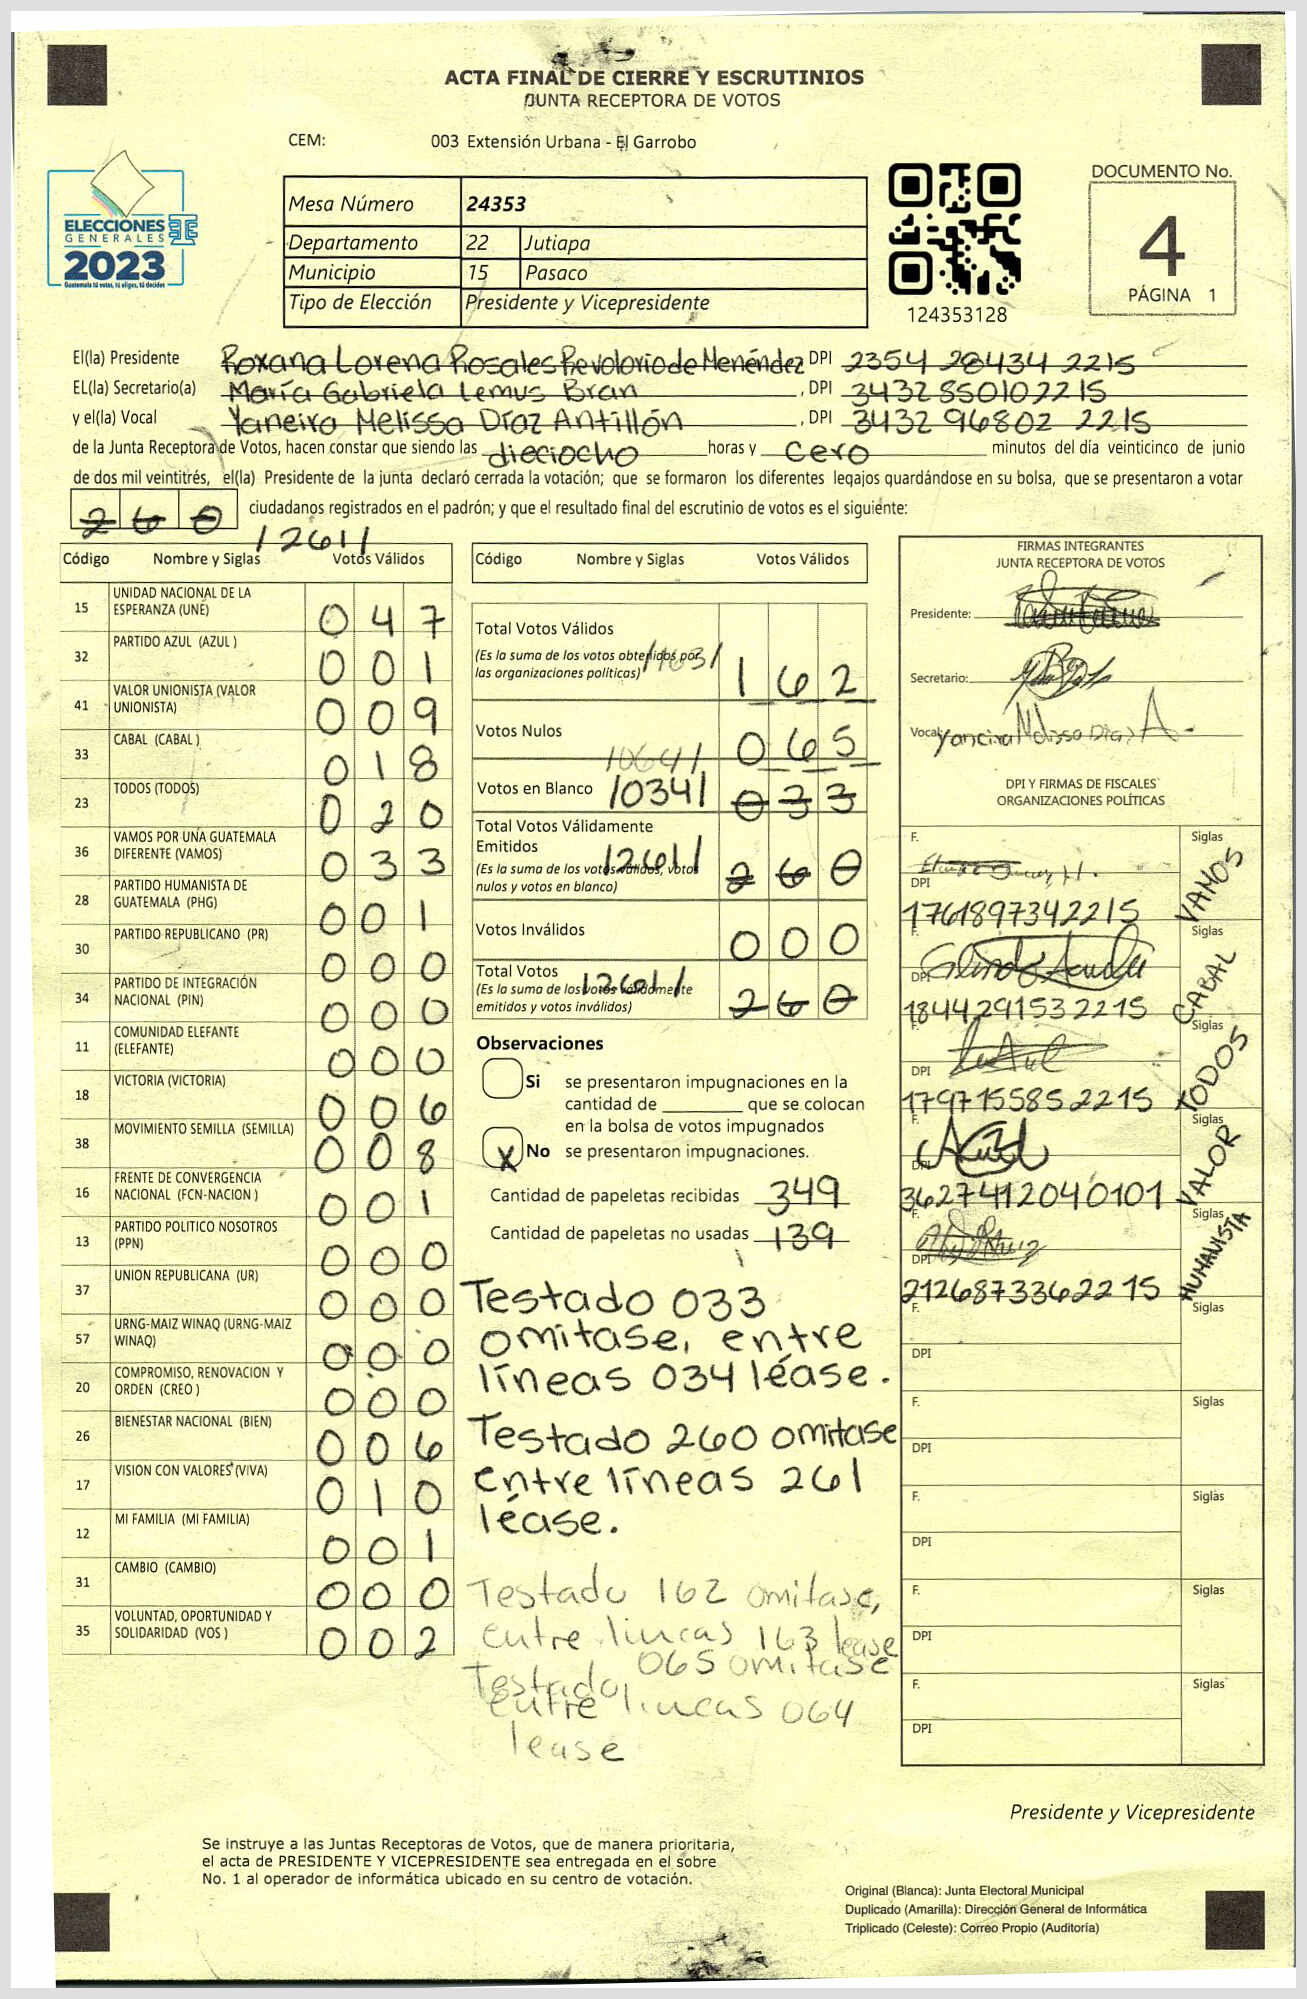 ACTA FINAL DE CIERRE Y ESCRUTINIOS
JUNTA RECEPTORA DE VOTOS
CEM: 003 Extensión Urbana - El Garrobo
ELECCIONES
GENERALES
2023
Guatemala tú votas, tú eliges, tú decides
Mesa Número 24353
Departamento 22 Jutiapa
Municipio 15 Pasaco
Tipo de Elección Presidente y Vicepresidente
124353128
DOCUMENTO No.
4
PÁGINA 1
El(la) Presidente Roxana Lorena Rosales Revolorio de Menéndez DPI 2354 28434 2215
EL(la) Secretario(a) María Gabriela Lemus Bran , DPI 3432 85010 2215
y el(la) Vocal Yaneira Melissa Díaz Antillón , DPI 3432 96802 2215
de la Junta Receptora de Votos, hacen constar que siendo las dieciocho horas y cero minutos del día veinticinco de junio
de dos mil veintitrés, el(la) Presidente de la junta declaró cerrada la votación; que se formaron los diferentes legajos guardándose en su bolsa, que se presentaron a votar
260 ciudadanos registrados en el padrón; y que el resultado final del escrutinio de votos es el siguiente:
/261/
Código Nombre y Siglas Votos Válidos
15 UNIDAD NACIONAL DE LA ESPERANZA (UNE) 047
32 PARTIDO AZUL (AZUL ) 001
41 VALOR UNIONISTA (VALOR UNIONISTA) 009
33 CABAL (CABAL ) 018
23 TODOS (TODOS) 020
36 VAMOS POR UNA GUATEMALA DIFERENTE (VAMOS) 033
28 PARTIDO HUMANISTA DE GUATEMALA (PHG) 001
30 PARTIDO REPUBLICANO (PR) 000
34 PARTIDO DE INTEGRACIÓN NACIONAL (PIN) 000
11 COMUNIDAD ELEFANTE (ELEFANTE) 000
18 VICTORIA (VICTORIA) 006
38 MOVIMIENTO SEMILLA (SEMILLA) 008
16 FRENTE DE CONVERGENCIA NACIONAL (FCN-NACION ) 001
13 PARTIDO POLITICO NOSOTROS (PPN) 000
37 UNION REPUBLICANA (UR) 000
57 URNG-MAIZ WINAQ (URNG-MAIZ WINAQ) 000
20 COMPROMISO, RENOVACION Y ORDEN (CREO ) 000
26 BIENESTAR NACIONAL (BIEN) 006
17 VISION CON VALORES (VIVA) 010
12 MI FAMILIA (MI FAMILIA) 001
31 CAMBIO (CAMBIO) 000
35 VOLUNTAD, OPORTUNIDAD Y SOLIDARIDAD (VOS ) 002
Código Nombre y Siglas Votos Válidos
Total Votos Válidos
(Es la suma de los votos obtenidos por las organizaciones políticas) /163/ 162
Votos Nulos /064/ 065
Votos en Blanco /034/ 033
Total Votos Válidamente Emitidos
(Es la suma de los votos válidos, votos nulos y votos en blanco) /261/ 260
Votos Inválidos 000
Total Votos
(Es la suma de los votos válidamente emitidos y votos inválidos) /261/ 260
Observaciones
Si se presentaron impugnaciones en la
cantidad de ________ que se colocan
en la bolsa de votos impugnados
X No se presentaron impugnaciones.
Cantidad de papeletas recibidas 349
Cantidad de papeletas no usadas 139
Testado 033
omitase, entre
líneas 034 léase.
Testado 260 omitase
entre líneas 261
léase.
Testado 162 omitase,
entre lineas 163 lease
Testado 065 omitase
entre lineas 064
lease
FIRMAS INTEGRANTES
JUNTA RECEPTORA DE VOTOS
Presidente:
Secretario:
Vocal: Yaneira Melissa Díaz A.
DPI Y FIRMAS DE FISCALES
ORGANIZACIONES POLÍTICAS
F. Siglas VAMOS
DPI 1761897342215
F. Siglas CABAL
DPI 1844291532215
F. Siglas TODOS
DPI 1797155852215
F. Siglas VALOR
DPI 3627412040101
F. Siglas HUMANISTA
DPI 2126873362215
F. Siglas
DPI
F. Siglas
DPI
F. Siglas
DPI
F. Siglas
DPI
F. Siglas
DPI
Presidente y Vicepresidente
Se instruye a las Juntas Receptoras de Votos, que de manera prioritaria,
el acta de PRESIDENTE Y VICEPRESIDENTE sea entregada en el sobre
No. 1 al operador de informática ubicado en su centro de votación.
Original (Blanca): Junta Electoral Municipal
Duplicado (Amarilla): Dirección General de Informática
Triplicado (Celeste): Correo Propio (Auditoría)